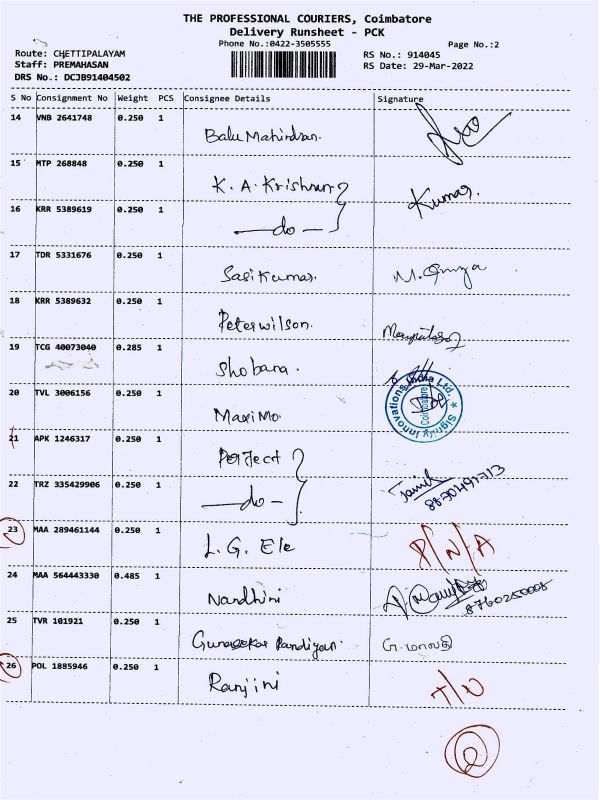 THE PROFESSIONAL COURIERS, Coimbatore
Delivery Runsheet - PCK
Phone No.:0422-3505555 Page No.:2
Route: CHETTIPALAYAM RS No.: 914045
Staff: PREMAHASAN RS Date: 29-Mar-2022
DRS No.: DCJB91404502
S No Consignment No Weight PCS Consignee Details Signature
14 VNB 2641748 0.250 1 Balu Mahindran.
15 MTP 268848 0.250 1 K. A. Krishnan Kumar.
16 KRR 5389619 0.250 1 —do—
17 TDR 5331676 0.250 1 Sasikumar.
18 KRR 5389632 0.250 1 Peterwilson.
19 TCG 40073040 0.285 1 Shobana.
20 TVL 3006156 0.250 1 Maximo. Signify Innovations India Ltd. * Coimbatore
21 APK 1246317 0.250 1 Perfect
22 TRZ 335429906 0.250 1 —do—
23 MAA 289461144 0.250 1 L. G. Ele P/N/A
24 MAA 564443330 0.485 1 Nandhini
25 TVR 101921 0.250 1 Gunasekar Pandiyan. G. மாலதி
26 POL 1885946 0.250 1 Ranjini
2